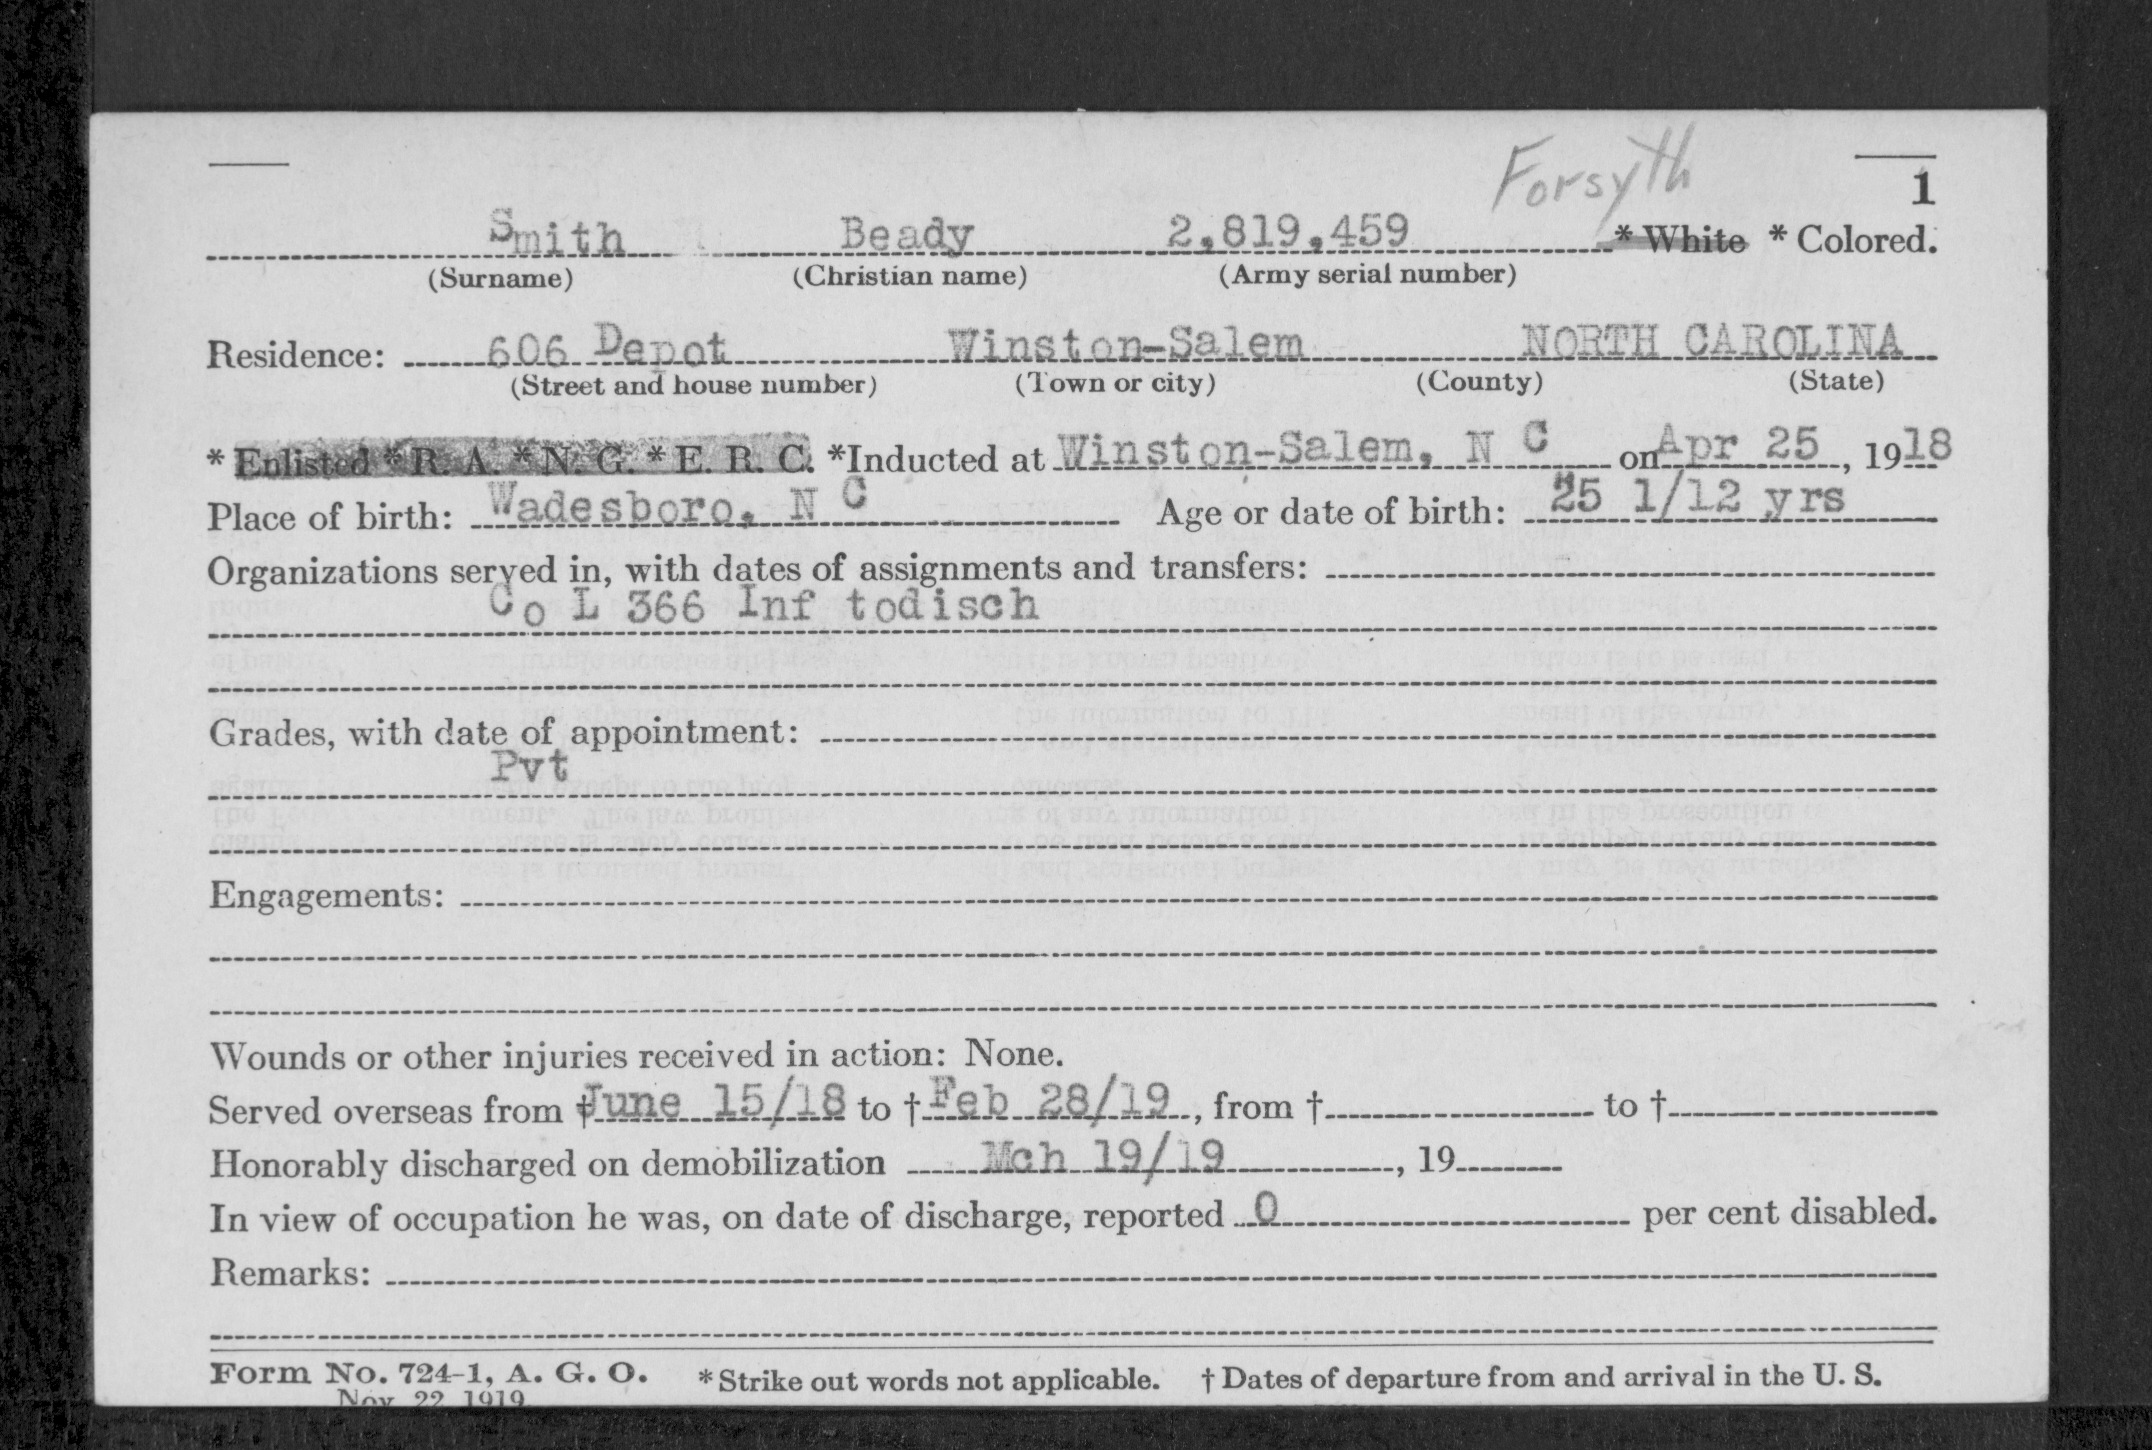 Forsyth
1
Smith Beady 2,819,459 * White * Colored.
(Surname) (Christian name) (Army serial number)
Residence: 606 Depot Winston-Salem NORTH CAROLINA
(Street and house number) (Town or city) (County) (State)
* Enlisted * R. A. * N. G. * E. R. C. *Inducted at Winston-Salem, N C on Apr 25, 1918
Place of birth: Wadesboro, N C Age or date of birth: 25 1/12 yrs
Organizations served in, with dates of assignments and transfers:
Co L 366 Inf todisch
Grades, with date of appointment:
Pvt
Engagements:
Wounds or other injuries received in action: None.
Served overseas from † June 15/18 to † Feb 28/19, from † to †
Honorably discharged on demobilization Mch 19/19, 19
In view of occupation he was, on date of discharge, reported 0 per cent disabled.
Remarks:
Form No. 724-1, A. G. O. * Strike out words not applicable. † Dates of departure from and arrival in the U. S.
Nov. 22, 1919